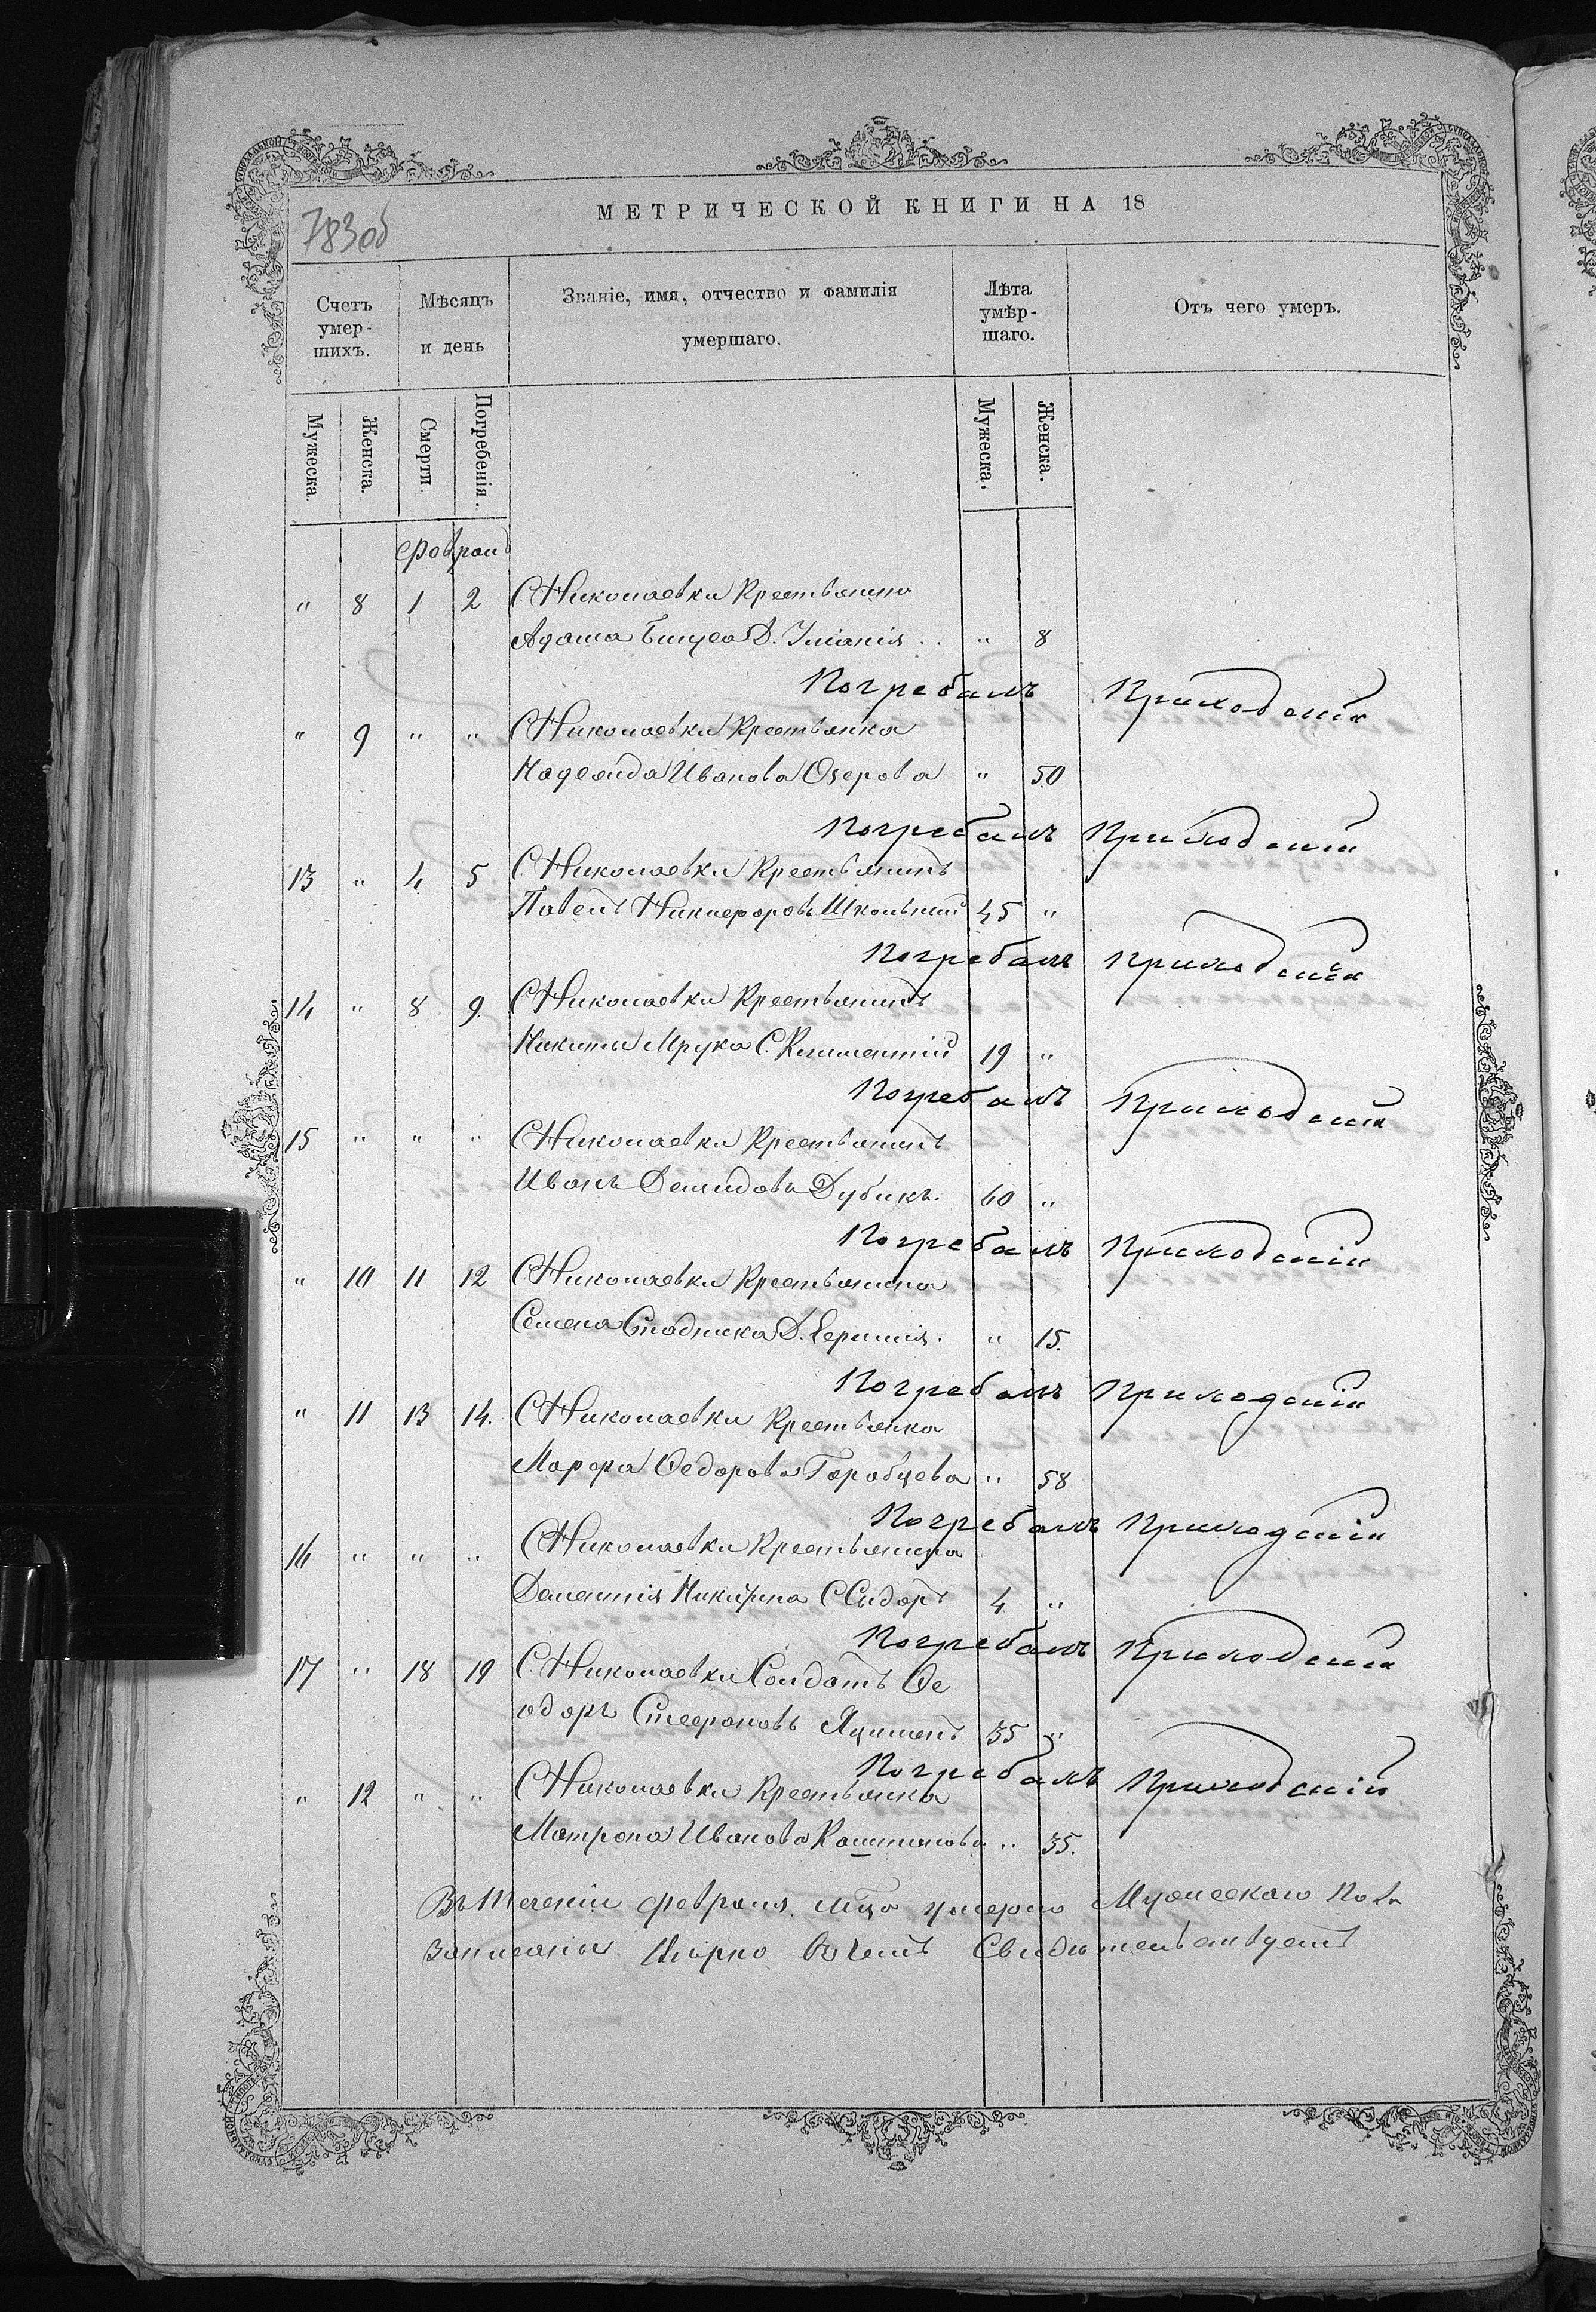 783об
МЕТРИЧЕСКОЙ КНИГИ НА 18
Счетъ умер-шихъ.
Мѣсяцъ и день
Званіе, имя, отчество и фамилія умершаго.
Лѣта умѣр-шаго.
Отъ чего умеръ.
Мужеска.
Женска.
Смерти.
Погребенія.
Мужеска.
Женска.
Февраль
" 8 1 2 С. Николаевки Крестьянина
Адама Д. Уліанія .. " 8
Погребалъ Приходскій
" 9 " " С. Николаевки Крестьянка
Надежда Иванова Озерова " 50
Погребалъ Приходскій
13 " 4 5 С. Николаевки Крестьянинъ
Павелъ Никифоровъ Школьный 45 "
Погребалъ Приходскій
14 " 8 9. С. Николаевки Крестьянинъ
Никиты Мрука С. Климентій 19 "
Погребалъ Приходскій
15 " " " С. Николаевки Крестьянинъ
Иванъ Демидовъ Дубикъ. 60 "
Погребалъ Приходскій
" 10 11 12 С. Николаевки Крестьянина
Семена Стадника Д. " 15.
Погребалъ Приходскій
" 11 13 14. С. Николаевки Крестьянка
Марфа Федорова Горобцева " 58
Погребалъ Приходскій
16 " " " С. Николаевки Крестьянина
Дементія С. Сидоръ 4 "
Погребалъ Приходскій
17 " 18 19 С. Николаевки Солдатъ Фе
одоръ Стефановъ 35 "
Погребалъ Приходскій
" 12 " " С. Николаевки Крестьянка
Матрона Иванова Каштанова " 35.
Въ теченіи февраля м-ца умерло Мужескаго пола
записаны вѣрно въ чемъ Свидѣтельствуетъ